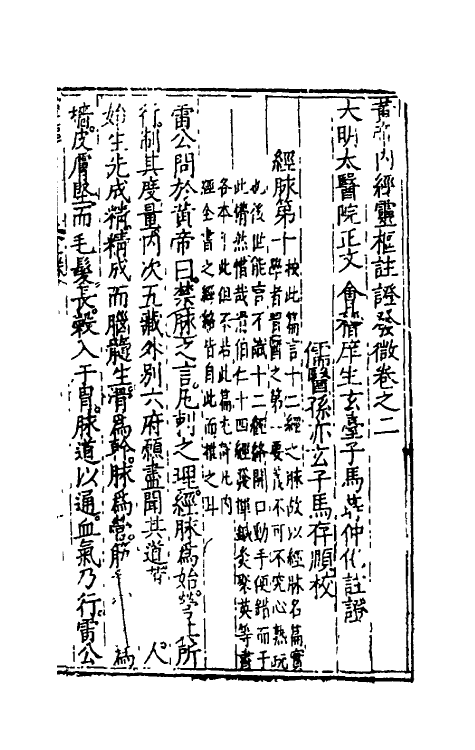 黃帝內經靈樞註證發微卷之二
大明太醫院正文 會稽庠生玄臺子馬 仲化註證
儒醫孫亦玄子馬存順校
經脉第十
按此篇言十二經之脉故以經脉名篇實
學者習醫之第一要義不可不究心熟玩
也後世能言不識十二經絡開口動手便錯而于
此懵然惜哉 滑伯仁十四經發揮鍼灸聚英等書
各本于此但不若此篇尤詳此內
經全書之經絡皆自此而推之耳
雷公問於黃帝曰禁脉之言凡刺之理經脉爲始營其所
行制其度量內次五藏外別六府願盡聞其道 人
始生先成精精成而腦髓生骨爲幹脉爲營筋 爲
墻皮膚堅而毛髮長穀入于胃脉道以通血氣乃行雷公